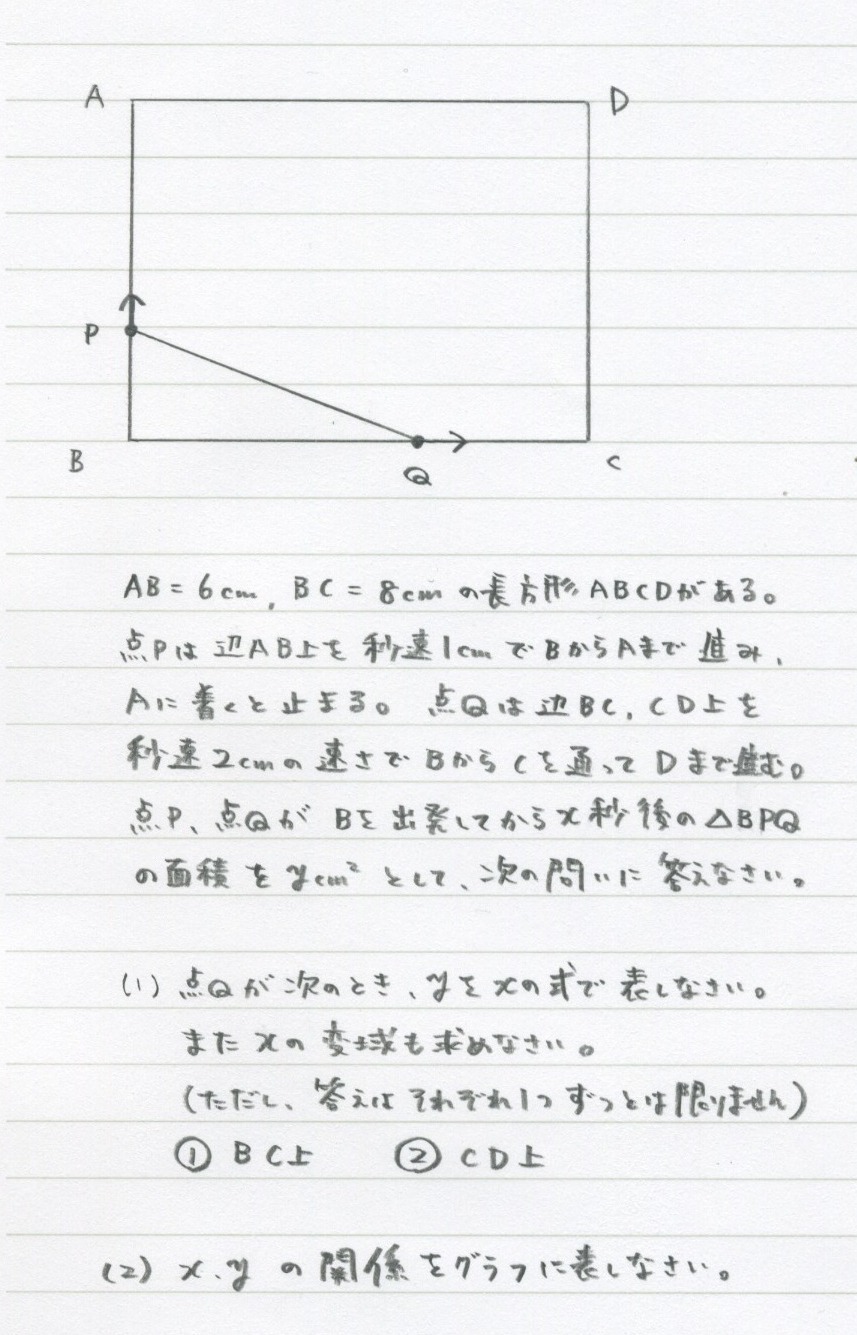 A D
P
B Q C
AB = 6cm, BC = 8cm の長方形ABCDがある。
点Pは 辺AB上を 秒速1cmでBからAまで進み,
Aに着くと止まる。 点Qは辺BC, CD上を
秒速2cmの速さでBからCを通ってDまで進む。
点P、点QがBを出発してからx秒後の△BPQ
の面積をycm²として、次の問いに答えなさい。
(1) 点Qが次のとき、yをxの式で表しなさい。
またxの変域も求めなさい。
(ただし、答えはそれぞれ1つずつとは限りません)
① BC上 ② CD上
(2) x、yの関係をグラフに表しなさい。